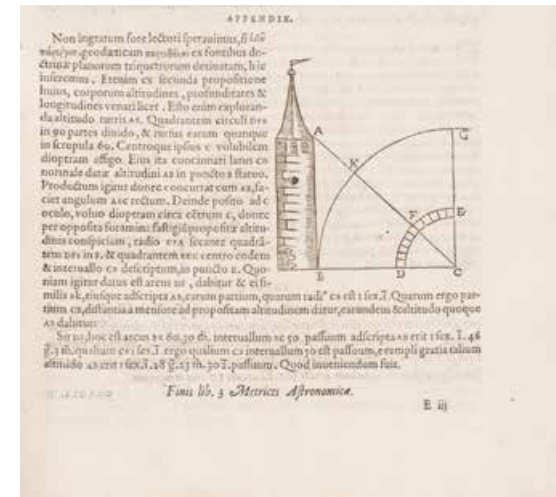 APPENDIX.
Non ingratum fore lectori speravimus, si
geodæticum ex fontibus do-
ctrinæ planorum triquetrorum derivatum, hîc
insereremus. Etenim ex secunda propositione
huius, corporum altitudines, profunditates &
longitudines venari licet. Esto enim exploran-
da altitudo turris AB. Quadrantem circuli DFE
in 90 partes divido, & rursus earum quamque
in scrupula 60. Centroque ipsius C volubilem
dioptram affigo. Eius ita concinnati latus CD
normale datæ altitudini AB in puncto B statuo.
Productum igitur donec concurrat cum AB, fa-
ciet angulum ABC rectum. Deinde posito ad C
oculo, volvo dioptram circa cẽtrum C, donec
per opposita foramina fastigiũ propositæ altitu-
dinis conspiciam, radio CFA secante quadrã-
tem DFE in F. & quadrantem centro eodem
& intervallo CB descriptum, in puncto K. Quo-
niam igitur datus est arcus DF, dabitur & ei si-
milis BK, eiusque adscripta AB, earum partium, quarum radiꝰ CB est 1 sex. I. Quarum ergo par-
tium CB, distantia à mensore ad propositam altitudinem datur, earundem & altitudo quoque
AB dabitur.
Sit DF, hoc est arcus BK 60. 30 m̃. intervallum BC 50 passuum adscripta AB erit 1 sex. I. 46
CB 1 sex. I. ergo qualium CB intervallum 50 est passuum, exempli gratia talium
altitudo AB erit 1 sex. I. 28 30 passuum. Quod inveniendum fuit.
A
G
K
F
E
B
D
C
Finis lib. 3 Metrices Astronomicæ.
E iij